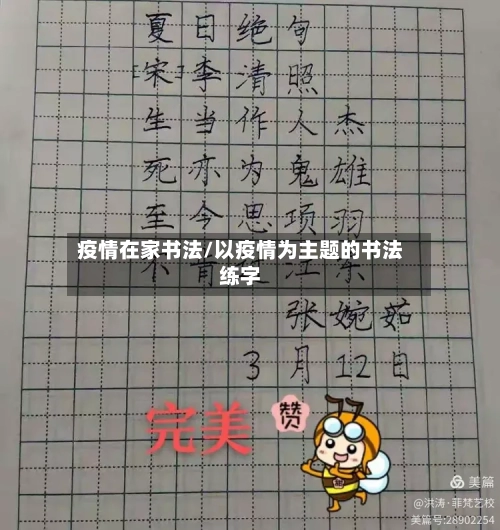 夏日绝句
[宋]李清照
生当作人杰
死亦为鬼雄
至今思项羽
疫情在家书法/以疫情为主题的书法
练字
不肯过江东
张婉茹
3月12日
完美
赞
美篇
@洪涛·菲梵艺校
美篇号:28902254